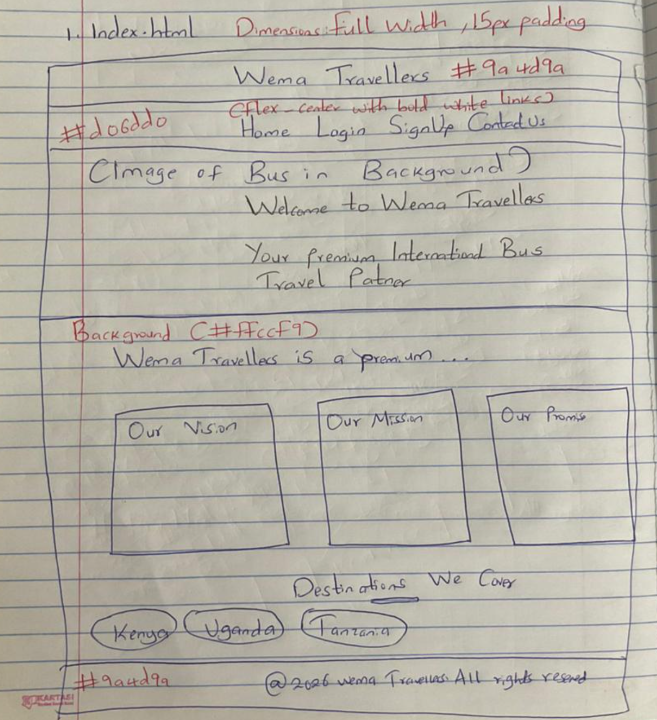 1. Index.html Dimensions: full width, 15px padding
Wema Travellers #9a4d9a
(flex-center with bold white links)
#d06dd0 Home Login SignUp Contact Us
(Image of Bus in Background)
Welcome to Wema Travellers
Your Premium International Bus
Travel Patner
Background (#ffccf9)
Wema Travellers is a premium...
Our Vision
Our Mission
Our Promise
Destinations We Cover
Kenya Uganda Tanzania
#9a4d9a @2026 Wema Travellers. All rights reserved